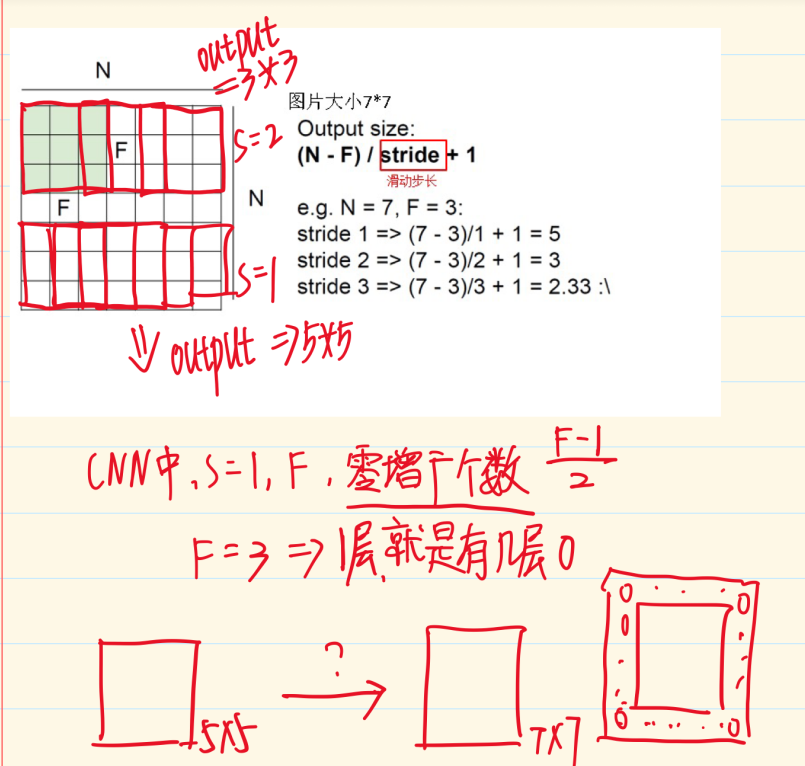 N
output
=3×3
图片大小7*7
Output size:
(N - F) / stride + 1
滑动步长
S=2
F
F
N
e.g. N = 7, F = 3:
stride 1 => (7 - 3)/1 + 1 = 5
stride 2 => (7 - 3)/2 + 1 = 3
stride 3 => (7 - 3)/3 + 1 = 2.33 :\
S=1
output => 5×5
CNN中,S=1, F, 零增个数 F-1
2
F=3 => 1层,就是有几层0
?
5×5
7×7
0 . . . 0
0
0 . . . . 0